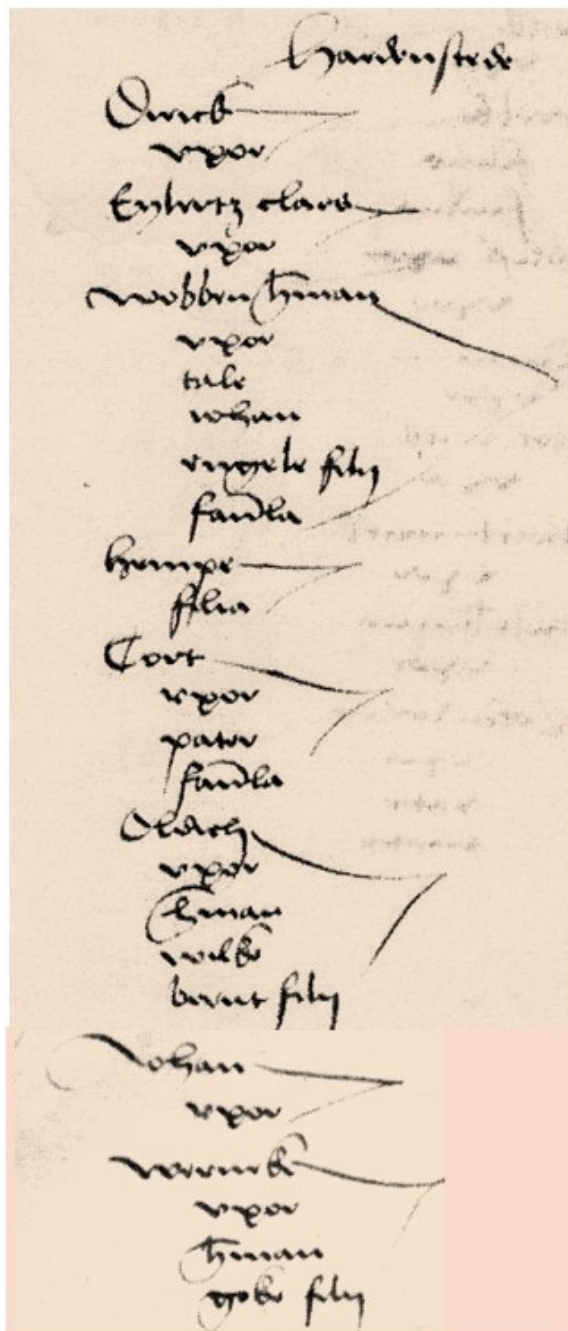 Hardenstede
Dirick
vxor
Eylertz clares
vxor
wobben hman
vxor
tale
Johan
engele filij
famla
hempe
filia
Cort
vxor
pater
famla
Olrich
vxor
hman
wilke
bernt filij
Johan
vxor
wernike
vxor
hman
goke filij